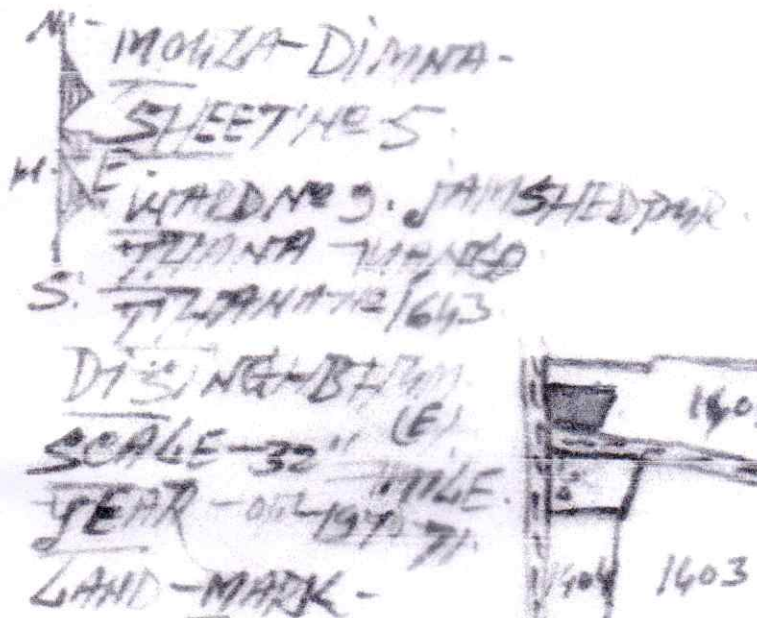 N.
MOUZA-DIMNA-
SHEET No 5.
W. E.
WARD No 9. JAMSHEDPUR.
THANA
S. THANA No 1643
DIST SINGHBHUM (E)
SCALE-32" MILE.
YEAR - OF 1970-71.
LAND-MARK-
1604 1603